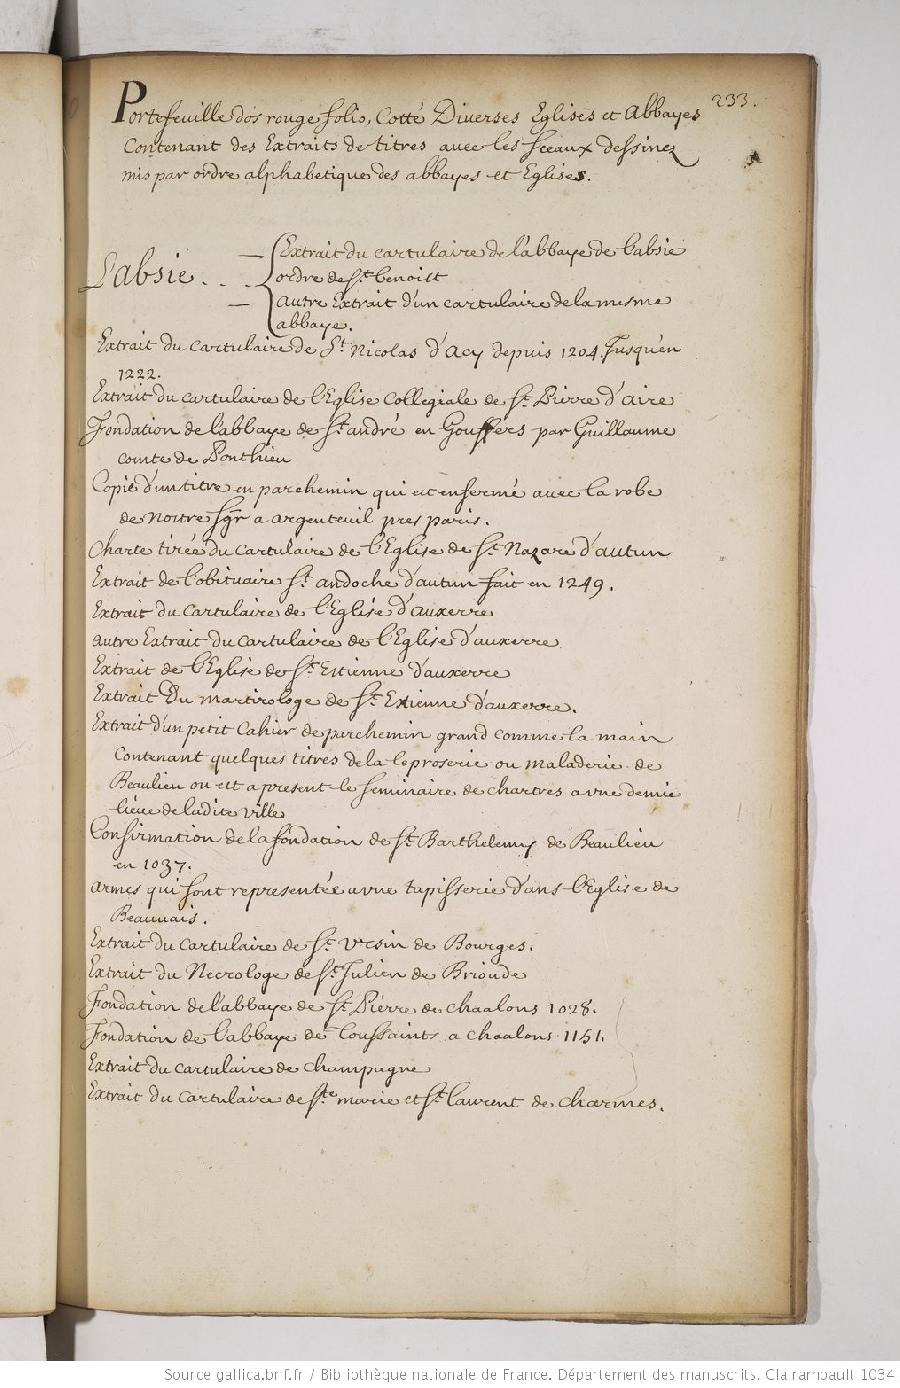 233.
Portefeuille dos rouge folio, Cotté Diverses Eglises et Abbayes
Contenant des Extraits de titres avec les sceaux dessinez
mis par ordre alphabetique des abbayes et Eglises.
L'absie... — Extrait du cartulaire de l'abbaye de l'absie
ordre de St. benoist
— autre Extrait d'un cartulaire de la mesme
abbaye.
Extrait du cartulaire de St. Nicolas d'Acy depuis 1204. Jusqu'en
1222.
Extrait du cartulaire de l'Eglise Collegiale de St. Pierre d'aire
Fondation de l'abbaye de St. andré en Gouffers par Guillaume
comte de Ponthieu
Copie d'un titre en parchemin qui est enfermé avec la robe
de Nostre Sgr a argenteuil pres paris.
Charte tirée du cartulaire de l'Eglise de St. Nazare d'autun
Extrait de l'obituaire St. andoche d'autun fait en 1249.
Extrait du cartulaire de l'Eglise d'auxerre
autre Extrait du cartulaire de l'Eglise d'auxerre
Extrait de l'Eglise de St. Estienne d'auxerre
Extrait Du martirologe de St. Etienne d'auxerre.
Extrait d'un petit Cahier de parchemin grand comme la main
contenant quelques titres de la leproserie ou maladerie de
Beaulieu ou est a present le seminaire de chartres a une demie
lieue de ladite ville
Confirmation de la fondation de St. Barthelemy de Beaulieu
en 1037.
armes qui sont representées a une tapisserie dans l'Eglise de
Beauvais.
Extrait du cartulaire de St. Ursin de Bourges.
Extrait du Necrologe de St. Julien de Brioude
Fondation de l'abbaye de St. Pierre de chaalons 1028.
Fondation de l'abbaye de Toussaints a chaalons 1151.
Extrait du cartulaire de champagne
Extrait du cartulaire de Ste. marie et St. laurent de charmes.
Source gallica.bnf.fr / Bibliothèque nationale de France. Département des manuscrits. Clairambault 1034